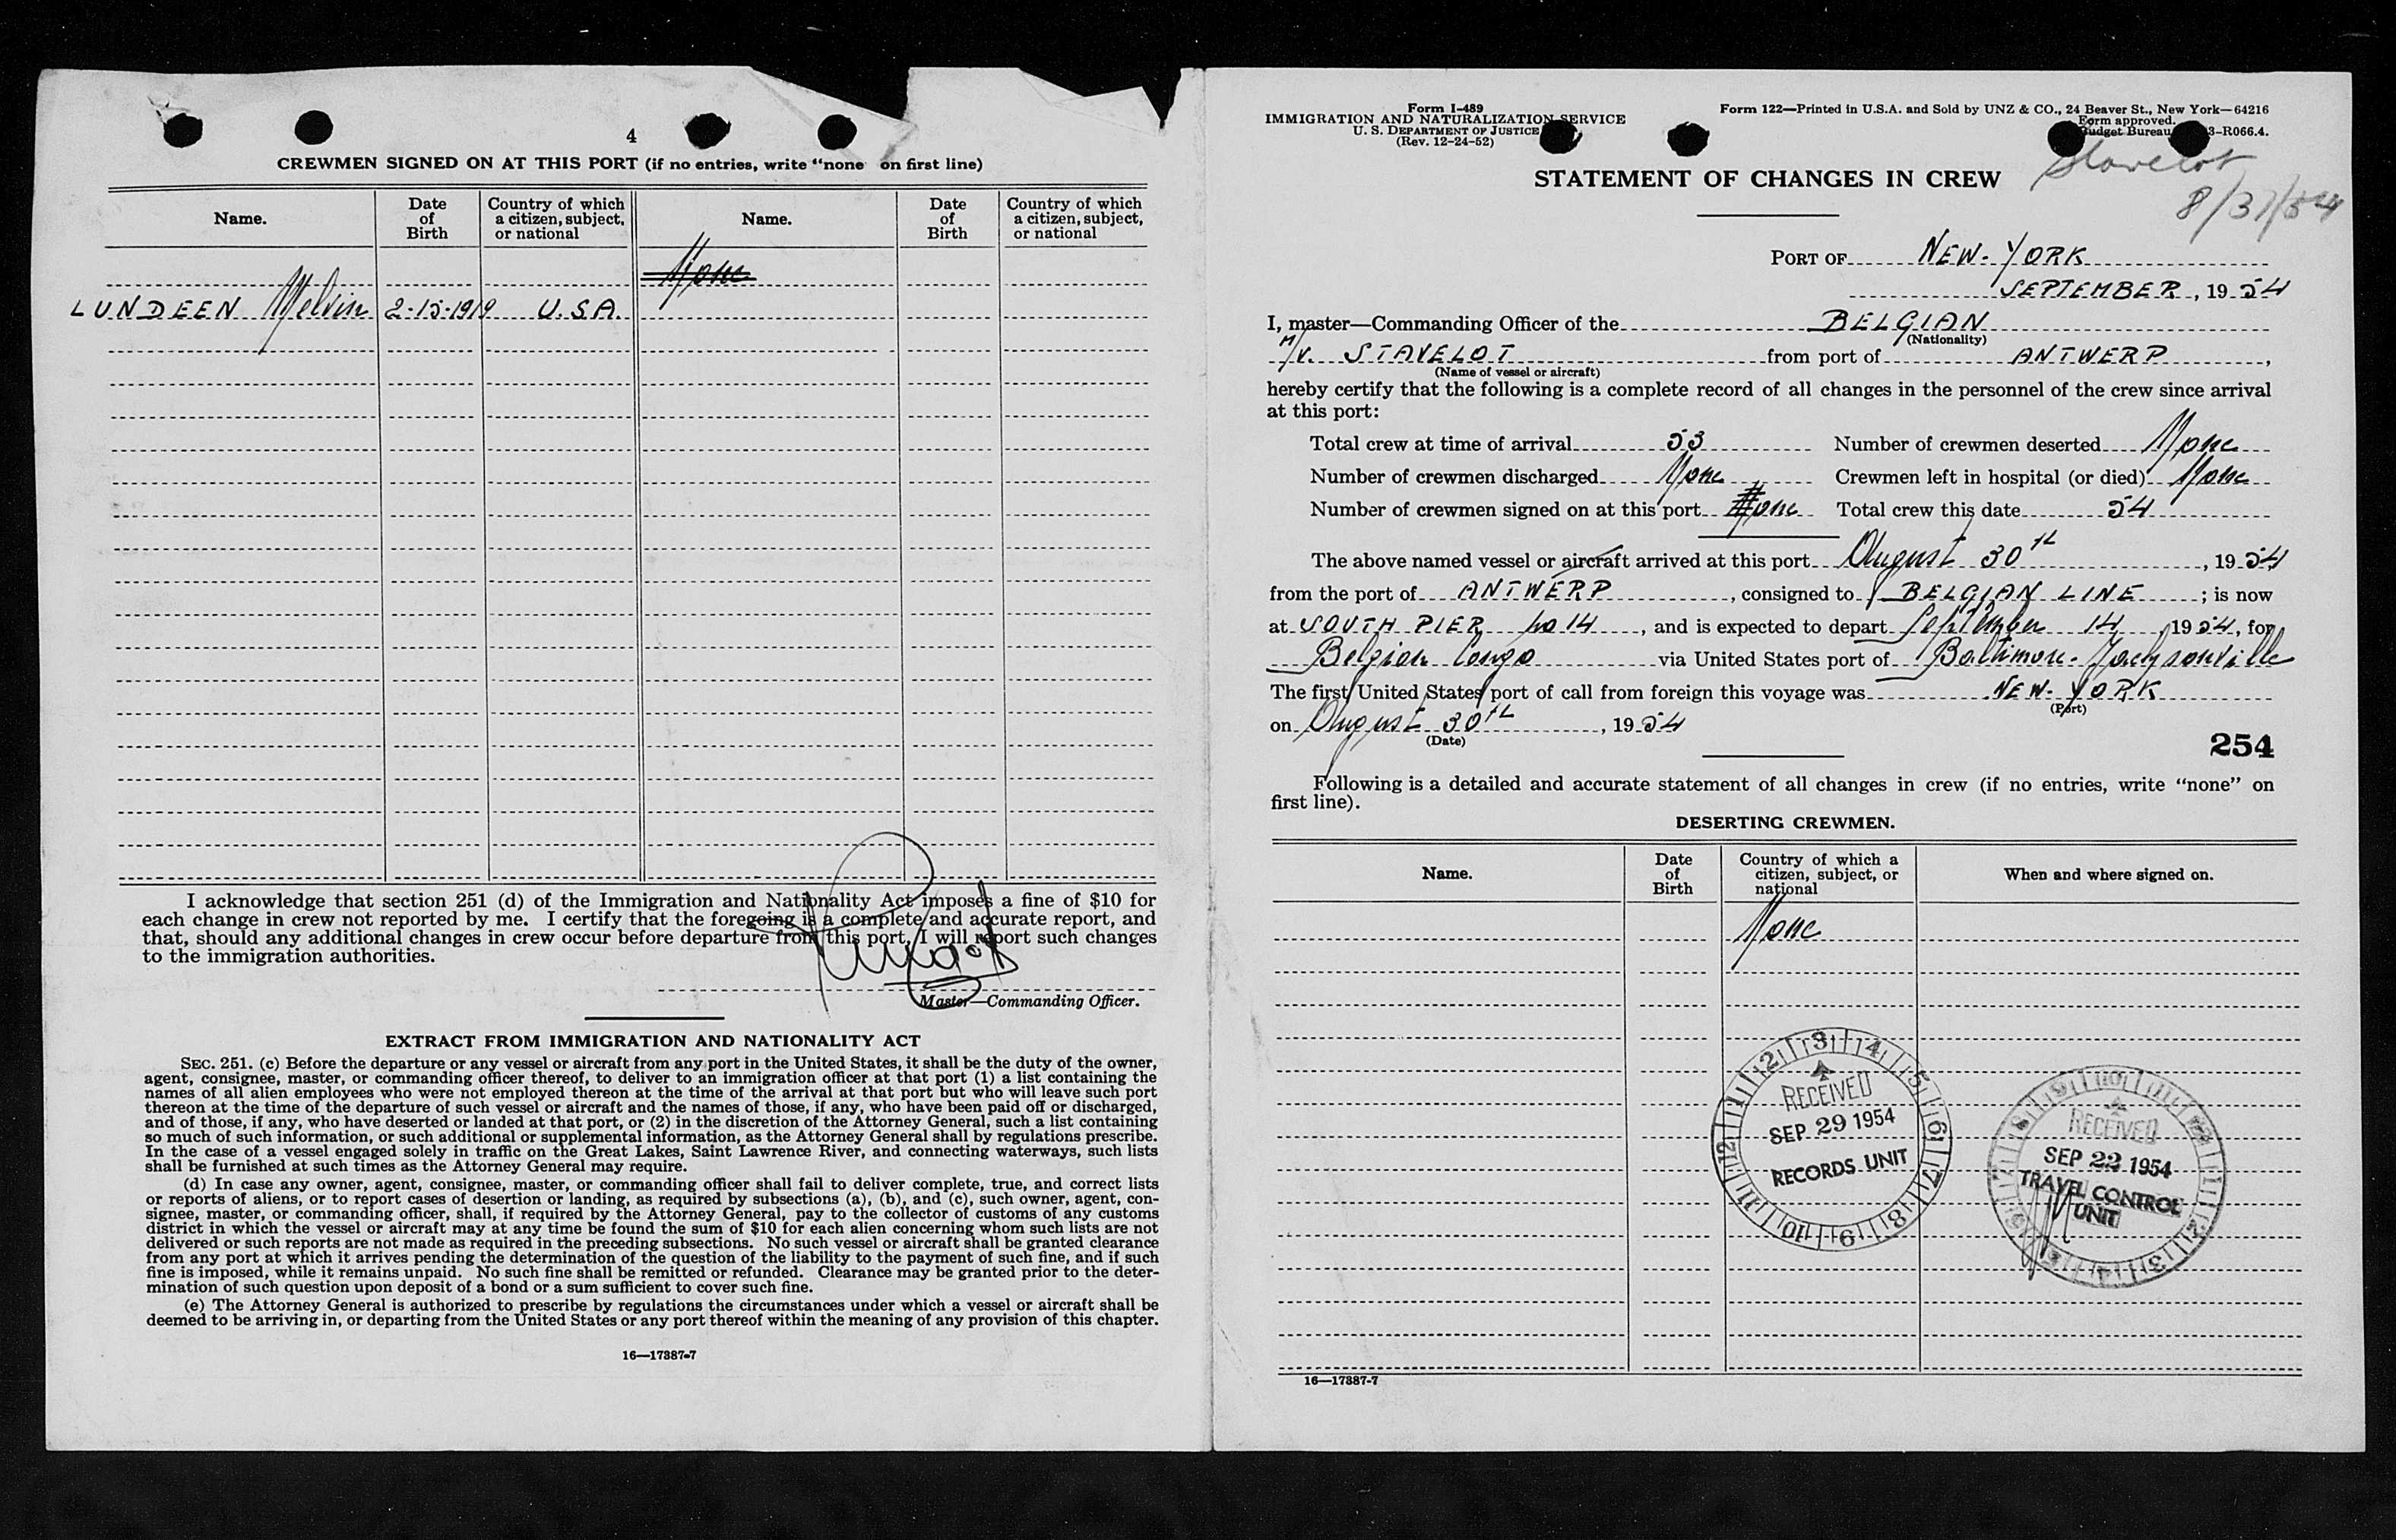 4
CREWMEN SIGNED ON AT THIS PORT (if no entries, write “none on first line)
Name.
Date of Birth
Country of which a citizen, subject, or national
Name.
Date of Birth
Country of which a citizen, subject, or national
None
LUNDEEN Melvin 2-15-1919 U.S.A.
I acknowledge that section 251 (d) of the Immigration and Nationality Act imposes a fine of $10 for
each change in crew not reported by me. I certify that the foregoing is a complete and accurate report, and
that, should any additional changes in crew occur before departure from this port, I will report such changes
to the immigration authorities.
Master—Commanding Officer.
EXTRACT FROM IMMIGRATION AND NATIONALITY ACT
SEC. 251. (c) Before the departure or any vessel or aircraft from any port in the United States, it shall be the duty of the owner,
agent, consignee, master, or commanding officer thereof, to deliver to an immigration officer at that port (1) a list containing the
names of all alien employees who were not employed thereon at the time of the arrival at that port but who will leave such port
thereon at the time of the departure of such vessel or aircraft and the names of those, if any, who have been paid off or discharged,
and of those, if any, who have deserted or landed at that port, or (2) in the discretion of the Attorney General, such a list containing
so much of such information, or such additional or supplemental information, as the Attorney General shall by regulations prescribe.
In the case of a vessel engaged solely in traffic on the Great Lakes, Saint Lawrence River, and connecting waterways, such lists
shall be furnished at such times as the Attorney General may require.
(d) In case any owner, agent, consignee, master, or commanding officer shall fail to deliver complete, true, and correct lists
or reports of aliens, or to report cases of desertion or landing, as required by subsections (a), (b), and (c), such owner, agent, con-
signee, master, or commanding officer, shall, if required by the Attorney General, pay to the collector of customs of any customs
district in which the vessel or aircraft may at any time be found the sum of $10 for each alien concerning whom such lists are not
delivered or such reports are not made as required in the preceding subsections. No such vessel or aircraft shall be granted clearance
from any port at which it arrives pending the determination of the question of the liability to the payment of such fine, and if such
fine is imposed, while it remains unpaid. No such fine shall be remitted or refunded. Clearance may be granted prior to the deter-
mination of such question upon deposit of a bond or a sum sufficient to cover such fine.
(e) The Attorney General is authorized to prescribe by regulations the circumstances under which a vessel or aircraft shall be
deemed to be arriving in, or departing from the United States or any port thereof within the meaning of any provision of this chapter.
16—17387-7
Form I-489
IMMIGRATION AND NATURALIZATION SERVICE
U. S. DEPARTMENT OF JUSTICE
(Rev. 12-24-52)
Form 122—Printed in U.S.A. and Sold by UNZ & CO., 24 Beaver St., New York—64216
Form approved.
Budget Bureau 3-R066.4.
Stavelot
8/31/54
STATEMENT OF CHANGES IN CREW
PORT OF NEW-YORK
SEPTEMBER, 1954
I, master—Commanding Officer of the BELGIAN
(Nationality)
M/V. STAVELOT from port of ANTWERP,
(Name of vessel or aircraft)
hereby certify that the following is a complete record of all changes in the personnel of the crew since arrival
at this port:
Total crew at time of arrival 53 Number of crewmen deserted None
Number of crewmen discharged None Crewmen left in hospital (or died) None
Number of crewmen signed on at this port one Total crew this date 54
The above named vessel or aircraft arrived at this port August 30th, 1954
from the port of ANTWERP, consigned to BELGIAN LINE; is now
at SOUTH PIER no 14, and is expected to depart September 14, 1954, for
Belgian Congo via United States port of Baltimore-Jacksonville
The first United States port of call from foreign this voyage was NEW-YORK
(Port)
on August 30th, 1954
(Date)
254
Following is a detailed and accurate statement of all changes in crew (if no entries, write “none” on
first line).
DESERTING CREWMEN.
Name.
Date of Birth
Country of which a citizen, subject, or national
When and where signed on.
None
1 2 3 4 5 6 7 8 9 10 11 12
RECEIVED
SEP 29 1954
RECORDS UNIT
RECEIVED
SEP 22 1954
TRAVEL CONTROL
UNIT
16—17387-7